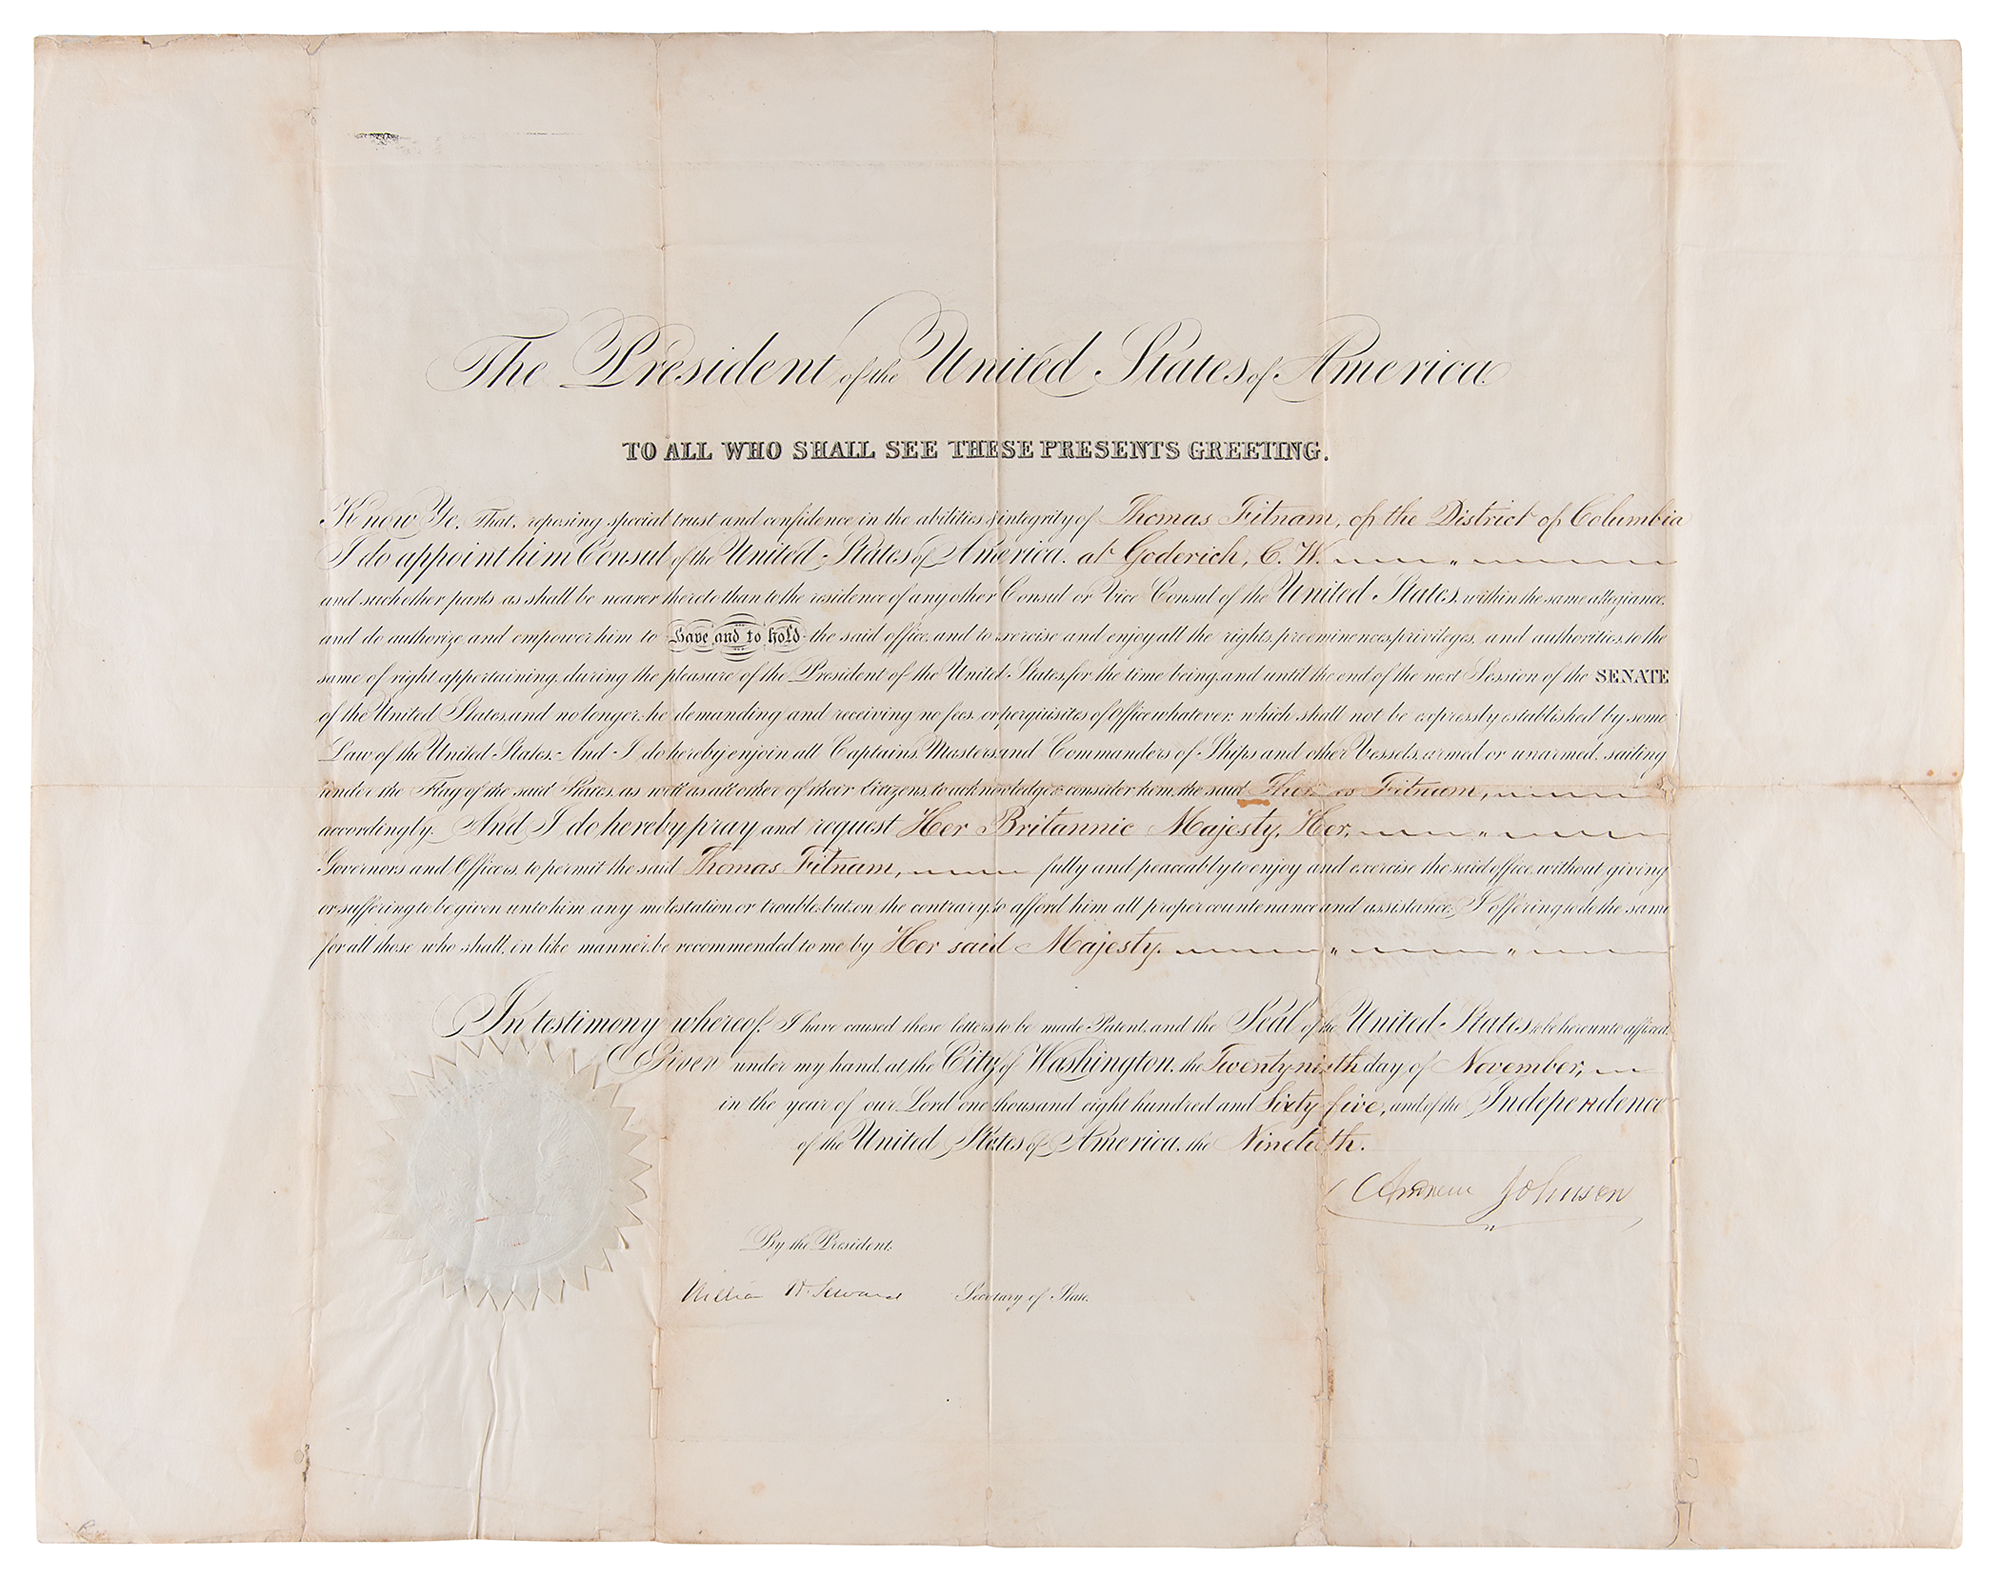 The President of the United States of America.
TO ALL WHO SHALL SEE THESE PRESENTS GREETING.
Know Ye, That, reposing special trust and confidence in the abilities & integrity of Thomas Fitnam, of the District of Columbia
I do appoint him Consul of the United States of America, at Goderich, C. W.
and such other parts as shall be nearer thereto than to the residence of any other Consul or Vice Consul of the United States, within the same allegiance,
and do authorize and empower him to Have and to hold the said office, and to exercise and enjoy all the rights, preeminences, privileges, and authorities, to the
same of right appertaining, during the pleasure of the President of the United States, for the time being, and until the end of the next Session of the SENATE
of the United States, and no longer; he demanding and receiving no fees, or perquisites of Office whatever, which shall not be expressly established by some
Law of the United States. And I do hereby enjoin all Captains, Masters, and Commanders of Ships and other Vessels, armed or unarmed, sailing
under the Flag of the said States, as well as all other of their Citizens, to acknowledge & consider him, the said Thomas Fitnam,
accordingly. And I do hereby pray and request Her Britannic Majesty, Her,
Governors and Officers, to permit the said Thomas Fitnam, fully and peaceably to enjoy and exercise the said office, without giving
or suffering to be given unto him any molestation or trouble, but, on the contrary, to afford him all proper countenance and assistance; I offering to do the same
for all those who shall, in like manner, be recommended to me by Her said Majesty.
In testimony whereof, I have caused these letters to be made Patent, and the Seal of the United States to be hereunto affixed.
Given under my hand, at the City of Washington, the Twenty-ninth day of November,
in the year of our Lord one thousand eight hundred and Sixty-five, and of the Independence
of the United States of America, the Ninetieth.
Andrew Johnson
By the President,
William H. Seward Secretary of State.